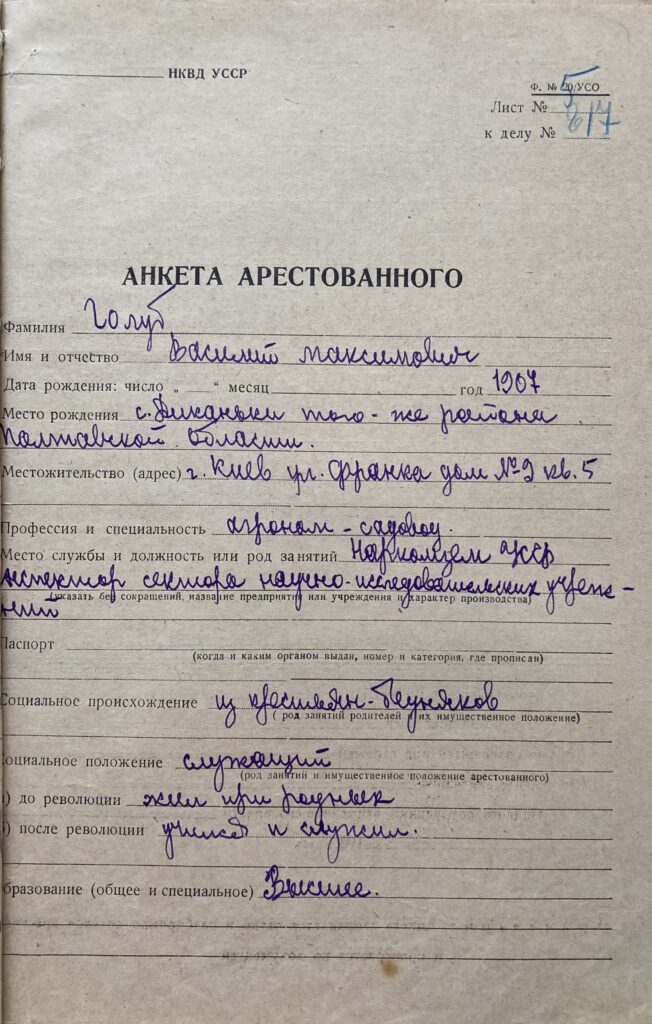 НКВД УССР
Ф. № 20/УСО
Лист № 5
к делу № 617
АНКЕТА АРЕСТОВАННОГО
Фамилия Голуб
Имя и отчество Василий Максимович
Дата рождения: число „ “ месяц год 1907
Место рождения с. Диканьки того-же района
Полтавской области.
Местожительство (адрес) г. Киев ул. Франка дом №9 кв. 5
Профессия и специальность агроном - садовод.
Место службы и должность или род занятий Наркомзем УССР
инспектор сектора научно-исследовательских учреж-
(указать без сокращений, название предприятия или учреждения и характер производства)
ний
Паспорт
(когда и каким органом выдан, номер и категория, где прописан)
Социальное происхождение из крестьян-бедняков
(род занятий родителей и их имущественное положение)
оциальное положение служащий
(род занятий и имущественное положение арестованного)
) до революции жил при родных
) после революции учился и служил.
бразование (общее и специальное) Высшее.